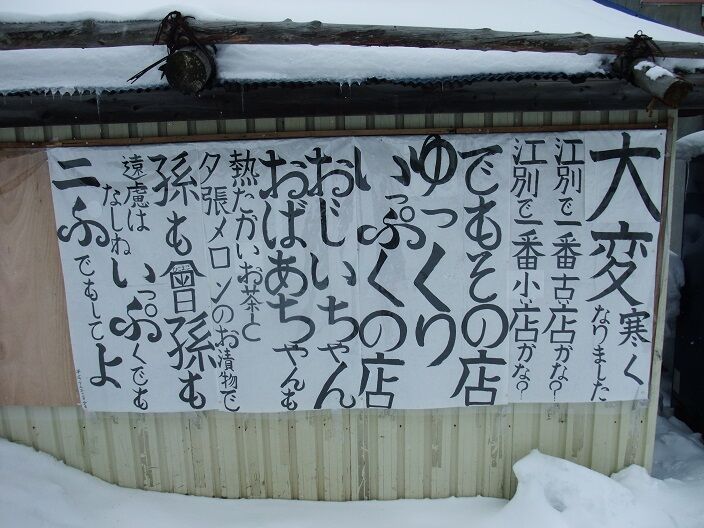 大変寒く
なりました
江別で一番古い店かな?
江別で一番小い店かな?
でもその店
ゆっくり
いっぷくの店
おじいちゃん
おばあちゃんも
熱たかいお茶と
夕張メロンのお漬物で
孫も曾孫も
遠慮は
なしね
いっぷくでも
ニふでもしてよ